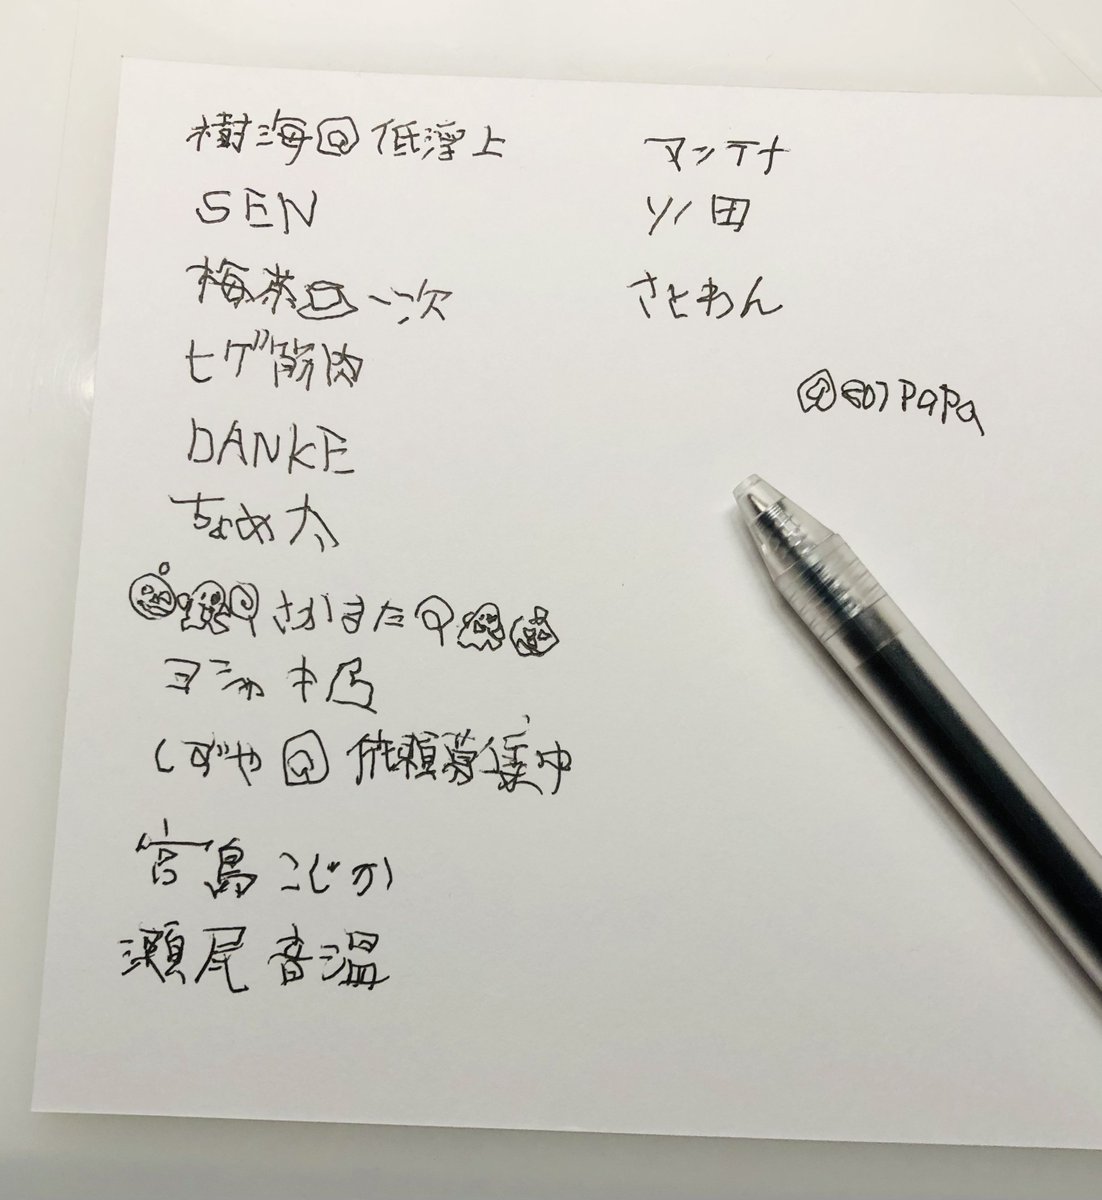 樹海@低浮上
SEN
梅茶@一次
ヒゲ筋肉
DANKE
ちょめ太
さかまた
ヨシャキ
しずや@依頼募集中
宮島こじか
瀬尾音温
マンテナ
ソノ田
さとわん
@607PaPa